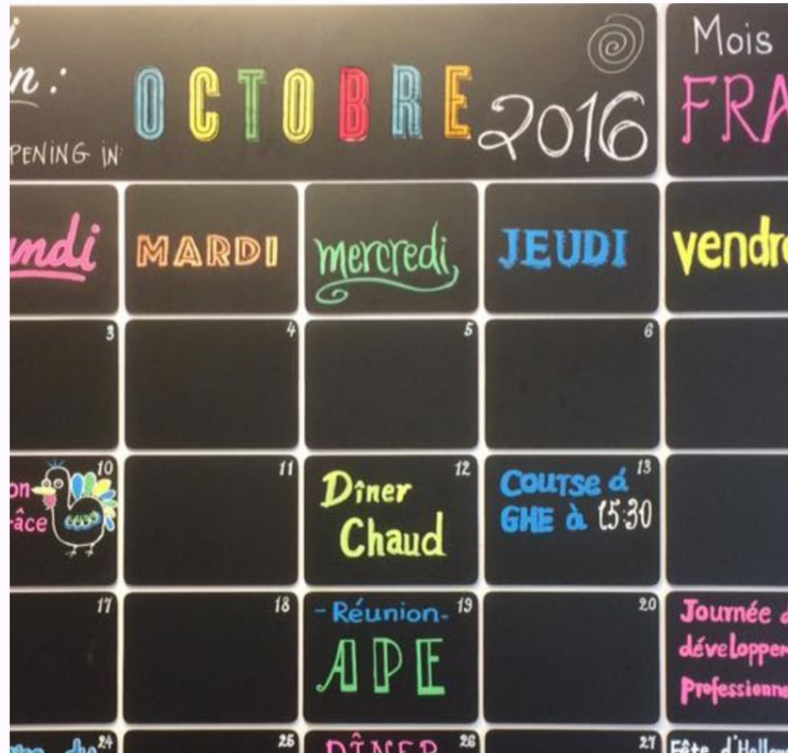 n :
OCTOBRE 2016
PENING IN:
Mois
FRA
undi
MARDI
mercredi
JEUDI
vendre
3
4
5
6
10
on
âce
11
12
Dîner
Chaud
13
Course á
GHE à 15:30
17
18
19
- Réunion -
APE
20
Journée d
développem
Professionne
24
25
26
DÎNER
27
Fête d'Hallow